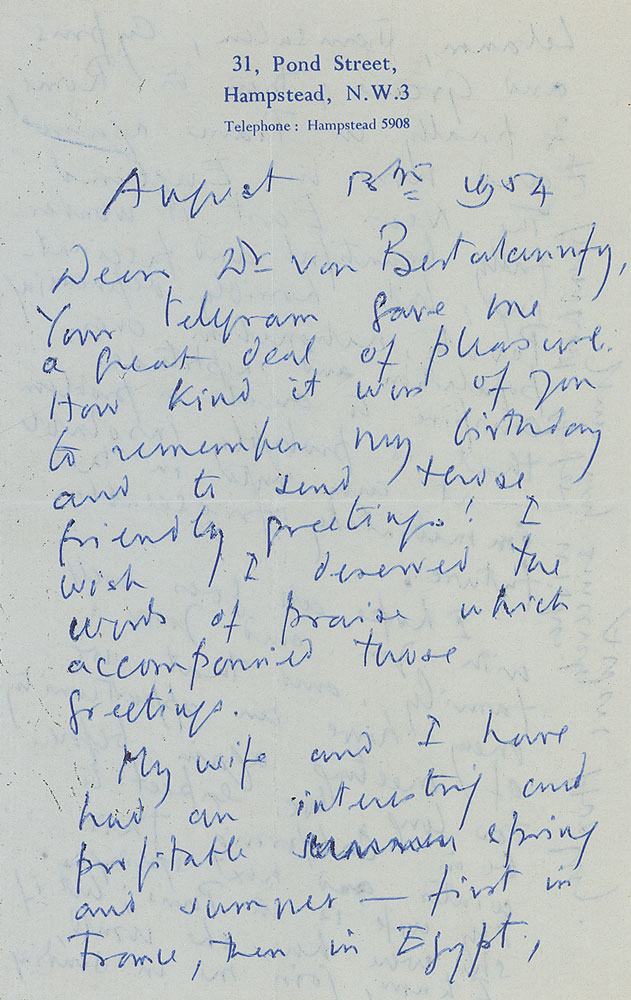 31, Pond Street,
Hampstead, N.W.3
Telephone: Hampstead 5908
August 13th 1954
Dear Dr von Bertalannfy,
Your telegram gave me
a great deal of pleasure.
How kind it was of you
to remember my birthday
and to send those
friendly greetings! I
wish I deserved the
words of praise which
accompanied those
greetings.
My wife and I have
had an interesting and
profitable spring
and summer — first in
France, then in Egypt,